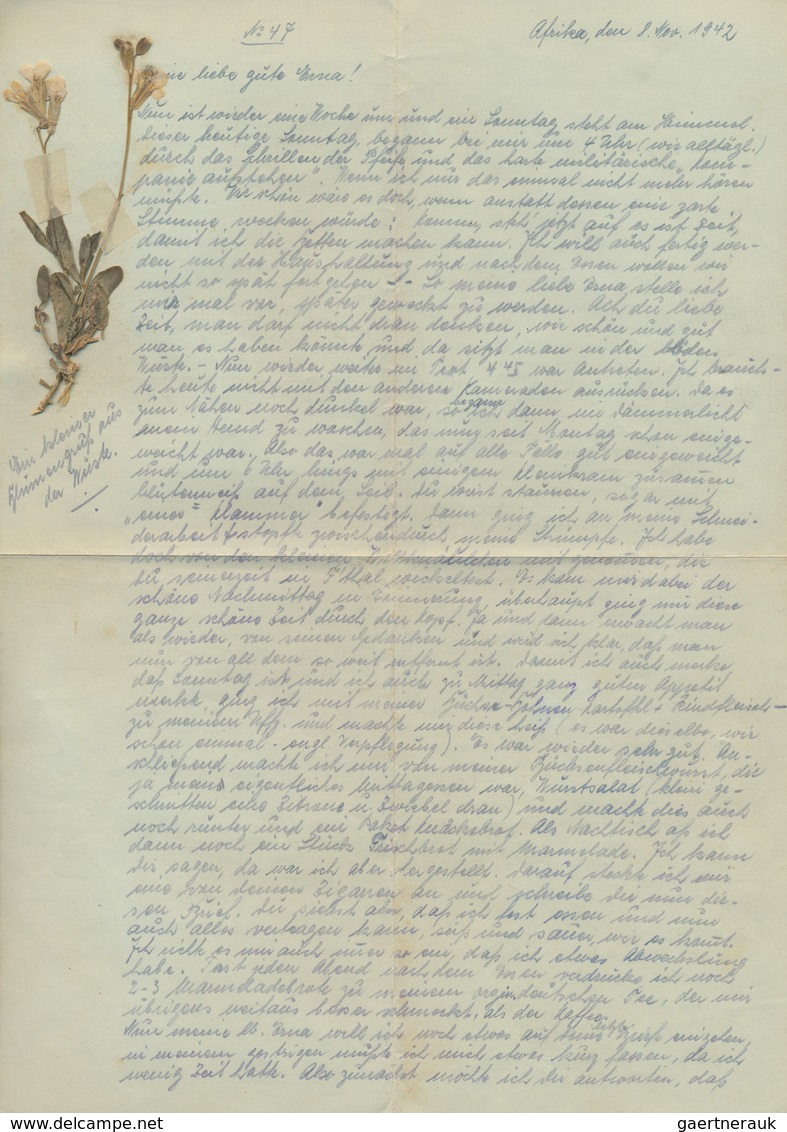 No 47
Afrika, den 8. Nov. 1942
liebe gute Erna!
Nun ist wieder eine Woche um und ein Sonntag steht am Himmel.
Dieser heutige Sonntag, begann bei mir um 4 Uhr (wie alltägl.)
durch das Schrillen der Pfeife und das harte militärische „Kom-
panie aufstehen". Wenn ich nur das einmal nicht mehr hören
müßte. Wie schön wäre es doch, wenn anstatt dessen eine zarte
Stimme wecken würde: komm, steh jetzt auf es ist Zeit,
damit ich die Betten machen kann. Ich will auch fertig wer-
den mit der Haushaltung und nach dem Essen wollen wir
nicht so spät fortgehen. - So meine liebe Erna stelle ich
mir mal vor, später geweckt zu werden. Ach du liebe
Zeit, man darf nicht dran denken, wie schön und gut
man es haben könnte und da sitzt man in der blöden
Wüste. - Nun wieder weiter im Text 4 45 war Antreten. Ich brauch-
te heute nicht mit den anderen Kameraden ausrücken. Da es
zum Nähen noch dunkel war, so begann ich dann im Dämmerlicht
mein Hemd zu waschen, das nun seit Montag schon einge-
weicht war. Also das war mal auf alle Fälle gut eingeweicht
und um 6 Uhr hings mit einigem Kleinkram zusammen
blütenweiß auf dem Seil. Du wirst staunen, sogar mit
„einer" Klammer" befestigt. Dann ging ich an meine Schnei-
derarbeit & stopfte zwischendurch meine Strümpfe. Ich habe
doch von den kleinen Wollknäulchen mit genommen, die
du seinerzeit in P'thal wickeltest. Es kam mir dabei der
schöne Nachmittag in Erinnerung, überhaupt ging mir diese
ganze schöne Zeit durch den Kopf. Ja und dann erwacht man
als wieder, von seinen Gedanken und wird sich klar, daß man
nun von all dem so weit entfernt ist. Damit ich auch merke
daß Sonntag ist und ich auch zu Mittag ganz guten Appetit
merkte, ging ich mit meiner Büchse Bohnen Kartoffel + Rindfleisch-
zu meinem Uffz. und machte mir diese heiß (es war dieselbe, wie
schon einmal - engl Verpflegung). Es war wieder sehr gut. An-
schließend machte ich mir von meiner Büchsenfleischwurst, die
ja mein eigentliches Mittagessen war, Wurstsalat (klein ge-
schnitten eine Zitrone u. Zwiebel dran) und machte dies auch
noch runter und ein Paket Knäckebrot. Als Nachtisch aß ich
dann noch ein Stück Frischbrot mit Marmelade. Ich kann
Dir sagen, da war ich aber hergestellt. Darauf steckte ich mir
eine von deinen Zigarren an und schreibe dir nun die-
sen Brief. Du siehst also, daß ich fest essen und nun
auch alles vertragen kann, süß und sauer, wie es kommt.
Ich richte es mir auch immer so ein, daß ich etwas Abwechslung
habe. Fast jeden Abend nach dem Essen verdrücke ich noch
2-3 Marmeladebrote zu meinem orgin. deutschen Tee, der mir
übrigens weitaus besser schmeckt, als der Kaffee.
Nun meine lb. Erna will ich noch etwas auf deine Briefe eingehen,
in meinem gestrigen mußte ich mich etwas kurz fassen, da ich
wenig Zeit hatte. Also zunächst möchte ich dir antworten, daß
Ein kleiner
Blumengruß aus
der Wüste.
www.delcampe.net
gaertnerauk